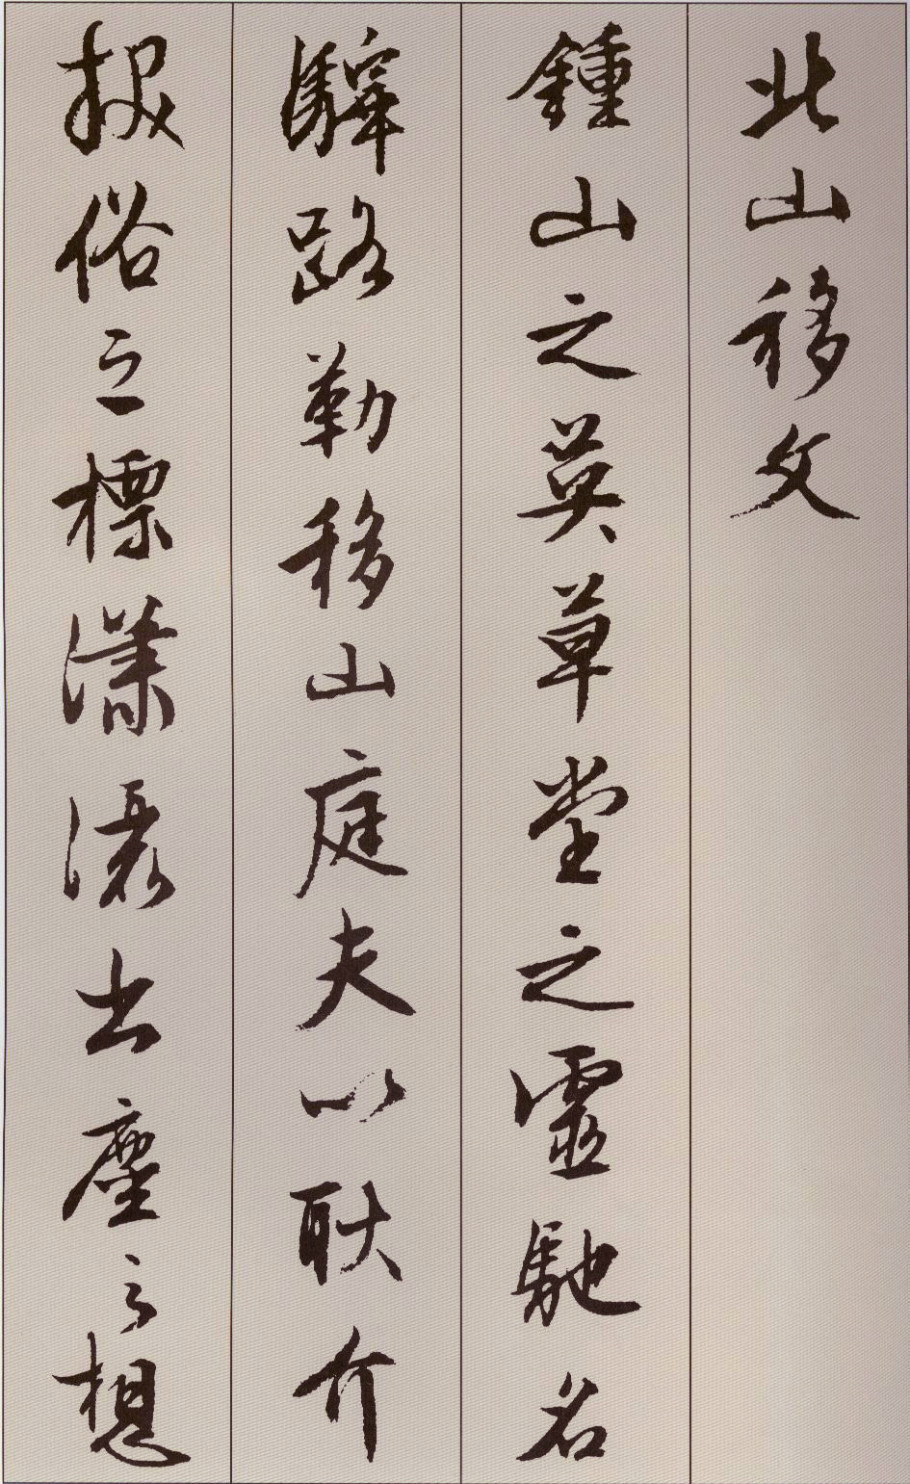 北山移文
鍾山之英草堂之靈馳名
驛路勒移山庭夫以耿介
拔俗之標瀟灑出塵之想